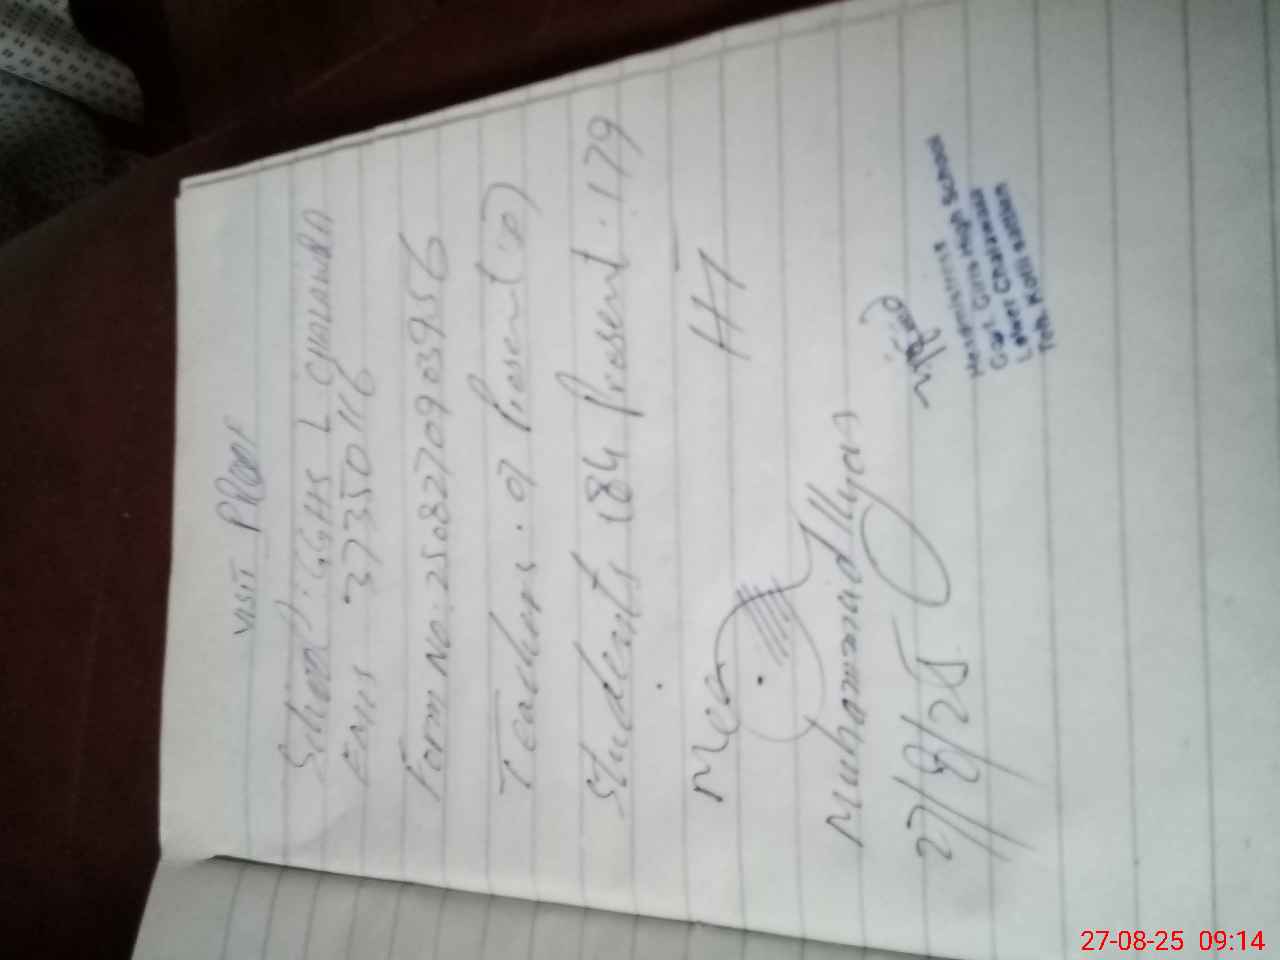 VISIT PROOF
School: GGHS L CHARAWRA
EMIS 37350116
Form No: 25082709039556
Teachers. 07 Present: 07
Students 184 Present. 179
Mea
HT
Muhammad Ilyas
27/8/25
Headmistress
Govt. Girls High School
Lower Charawrar
Teh. Kotli Sattian
27-08-25 09:14